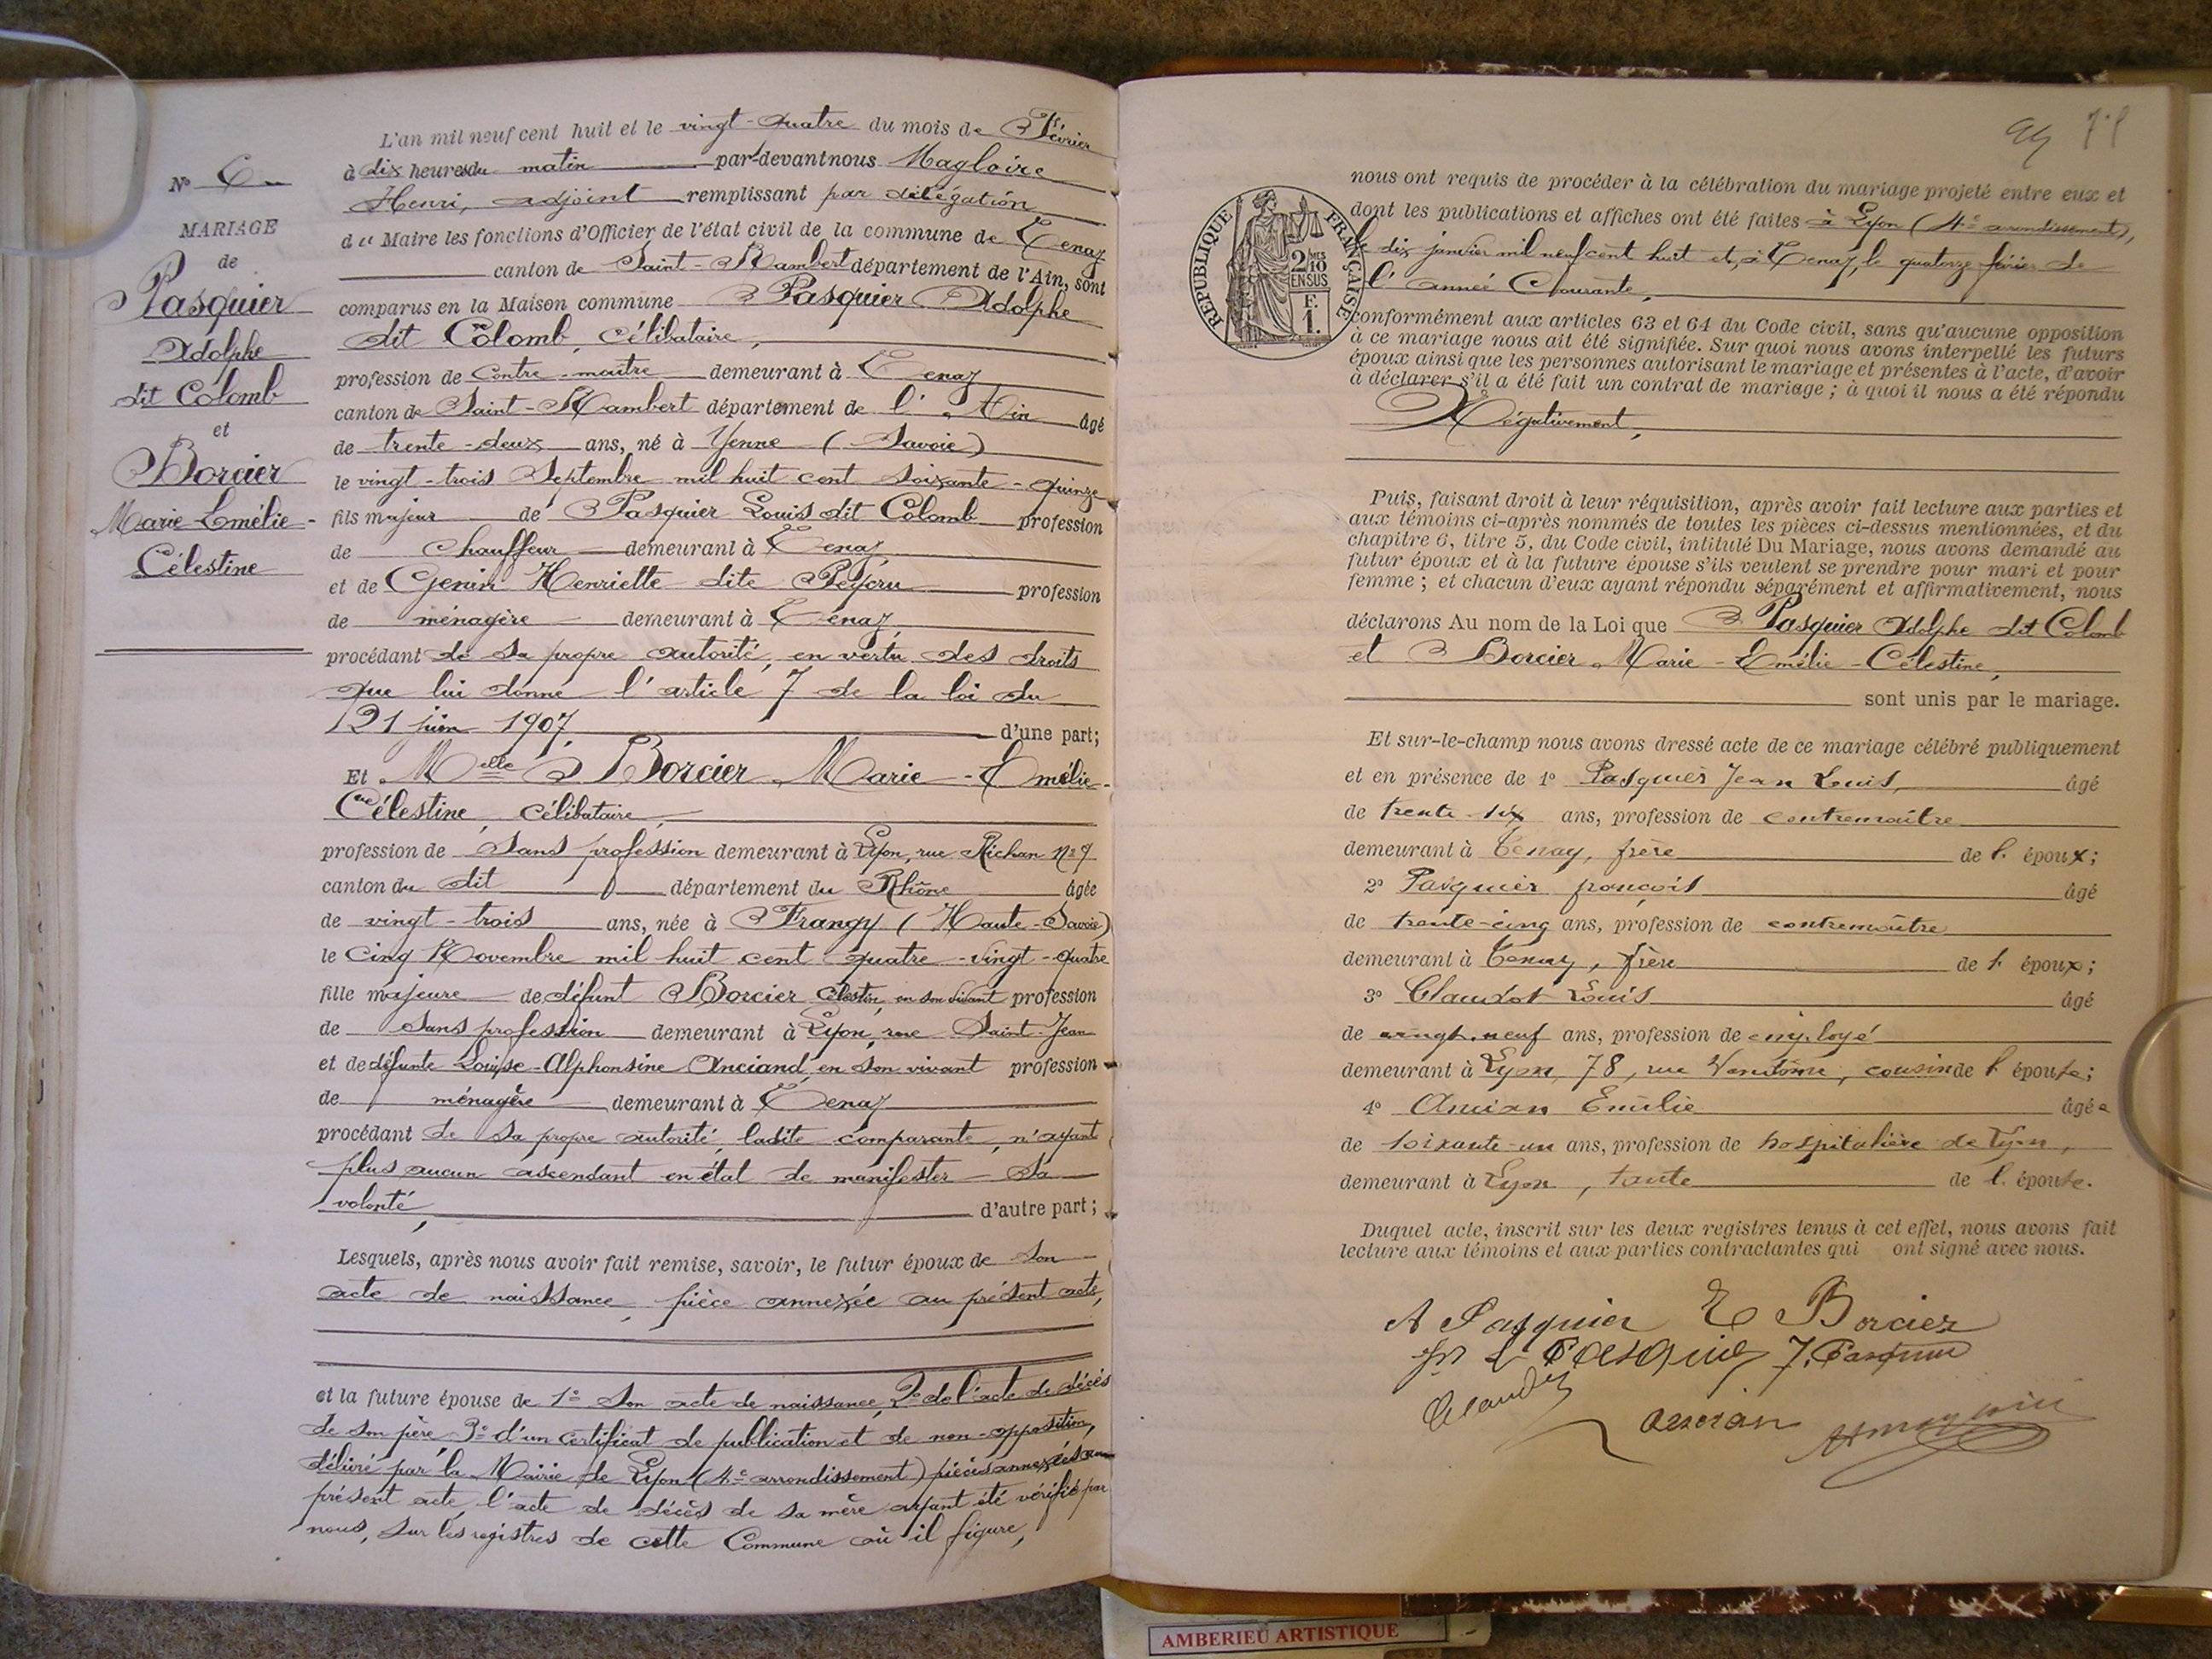 L'an mil neuf cent huit et le vingt-quatre du mois de Février
à dix heures du matin par-devant nous Magloire
Henri, adjoint remplissant par délégation
du Maire les fonctions d'Officier de l'état civil de la commune de Tenay
canton de Saint-Rambert département de l'Ain, sont
comparus en la Maison commune Pasquier Adolphe
dit Colomb, célibataire,
profession de contre-maître demeurant à Tenay
canton de Saint-Rambert département de l'Ain âgé
de trente-deux ans, né à Yenne (Savoie)
le vingt-trois Septembre mil huit cent soixante-quinze
fils majeur de Pasquier Louis dit Colomb profession
de chauffeur demeurant à Tenay,
et de Genin Henriette dite Peycru profession
de ménagère demeurant à Tenay,
procédant de sa propre autorité, en vertu des droits
que lui donne l'article 7 de la loi du
21 juin 1907, d'une part;
Et Melle Borcier Marie-Emélie-
Célestine, célibataire,
profession de Sans profession demeurant à Lyon, rue Richan No 9
canton du dit département du Rhône âgée
de vingt-trois ans, née à Frangy (Haute-Savoie)
le cinq Novembre mil huit cent quatre-vingt-quatre
fille majeure de défunt Borcier Célestin, en son vivant profession
de Sans profession demeurant à Lyon, rue Saint-Jean
et de défunte Louise-Alphonsine Anciand, en son vivant profession
de ménagère demeurant à Tenay
procédant de sa propre autorité, ladite comparante, n'ayant
plus aucun ascendant en état de manifester sa
volonté, d'autre part;
Lesquels, après nous avoir fait remise, savoir, le futur époux de son
acte de naissance, pièce annexée au présent acte,
et la future épouse de 1° Son acte de naissance, 2° de l'acte de décès
de son père 3° d'un certificat de publication et de non-opposition,
délivré par la Mairie de Lyon (4e arrondissement) pièces annexées au
présent acte, l'acte de décès de sa mère ayant été vérifié par
nous, sur les registres de cette Commune où il figure,
No 6
MARIAGE
de
Pasquier
Adolphe
dit Colomb
et
Borcier
Marie-Emélie-
Célestine
REPUBLIQUE FRANÇAISE
2 MES
10
EN SUS
F.
1.
nous ont requis de procéder à la célébration du mariage projeté entre eux et
dont les publications et affiches ont été faites à Lyon (4e arrondissement),
le dix janvier mil neuf cent huit et, à Tenay, le quatorze février de
l'année Courante,
conformément aux articles 63 et 64 du Code civil, sans qu'aucune opposition
à ce mariage nous ait été signifiée. Sur quoi nous avons interpellé les futurs
époux ainsi que les personnes autorisant le mariage et présentes à l'acte, d'avoir
à déclarer s'il a été fait un contrat de mariage; à quoi il nous a été répondu
Négativement,
Puis, faisant droit à leur réquisition, après avoir fait lecture aux parties et
aux témoins ci-après nommés de toutes les pièces ci-dessus mentionnées, et du
chapitre 6, titre 5, du Code civil, intitulé Du Mariage, nous avons demandé au
futur époux et à la future épouse s'ils veulent se prendre pour mari et pour
femme; et chacun d'eux ayant répondu séparément et affirmativement, nous
déclarons Au nom de la Loi que Pasquier Adolphe dit Colomb
et Borcier Marie-Emélie-Célestine,
sont unis par le mariage.
Et sur-le-champ nous avons dressé acte de ce mariage célébré publiquement
et en présence de 1° Pasquier Jean Louis, âgé
de trente six ans, profession de contremaître
demeurant à Tenay, frère de l' époux;
2° Pasquier françois âgé
de trente-cinq ans, profession de contremaître
demeurant à Tenay, frère de l' époux;
3° Claudot Louis âgé
de vingt-neuf ans, profession de employé
demeurant à Lyon, 78, rue Vendôme, cousin de l' épouse;
4° Ancian Emilie âgée
de soixante-un ans, profession de hospitalière de Lyon,
demeurant à Lyon, tante de l' épouse.
Duquel acte, inscrit sur les deux registres tenus à cet effet, nous avons fait
lecture aux témoins et aux parties contractantes qui ont signé avec nous.
A Pasquier E Borcier
L Pasquier F. Pasquier
Claudot
Ancian
AMBERIEU ARTISTIQUE